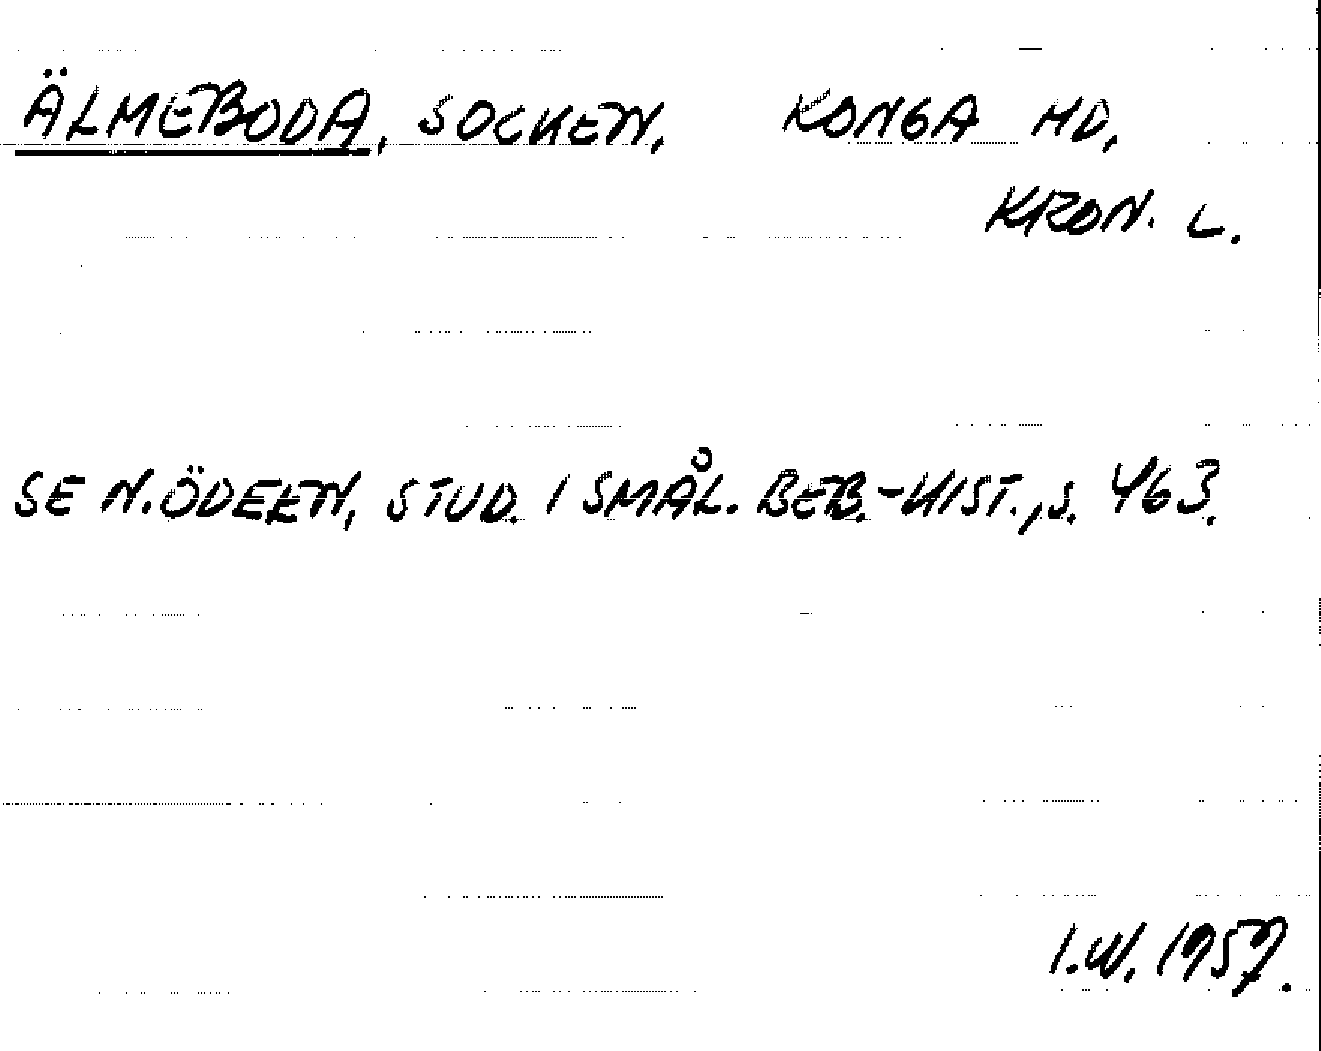 ÄLMEBODA, SOCKEN, KONGA HD,
KRON. L.
SE N. ÖDEEN, STUD. I SMÅL. BEB.-HIST., S. 463.
I.W. 1957.